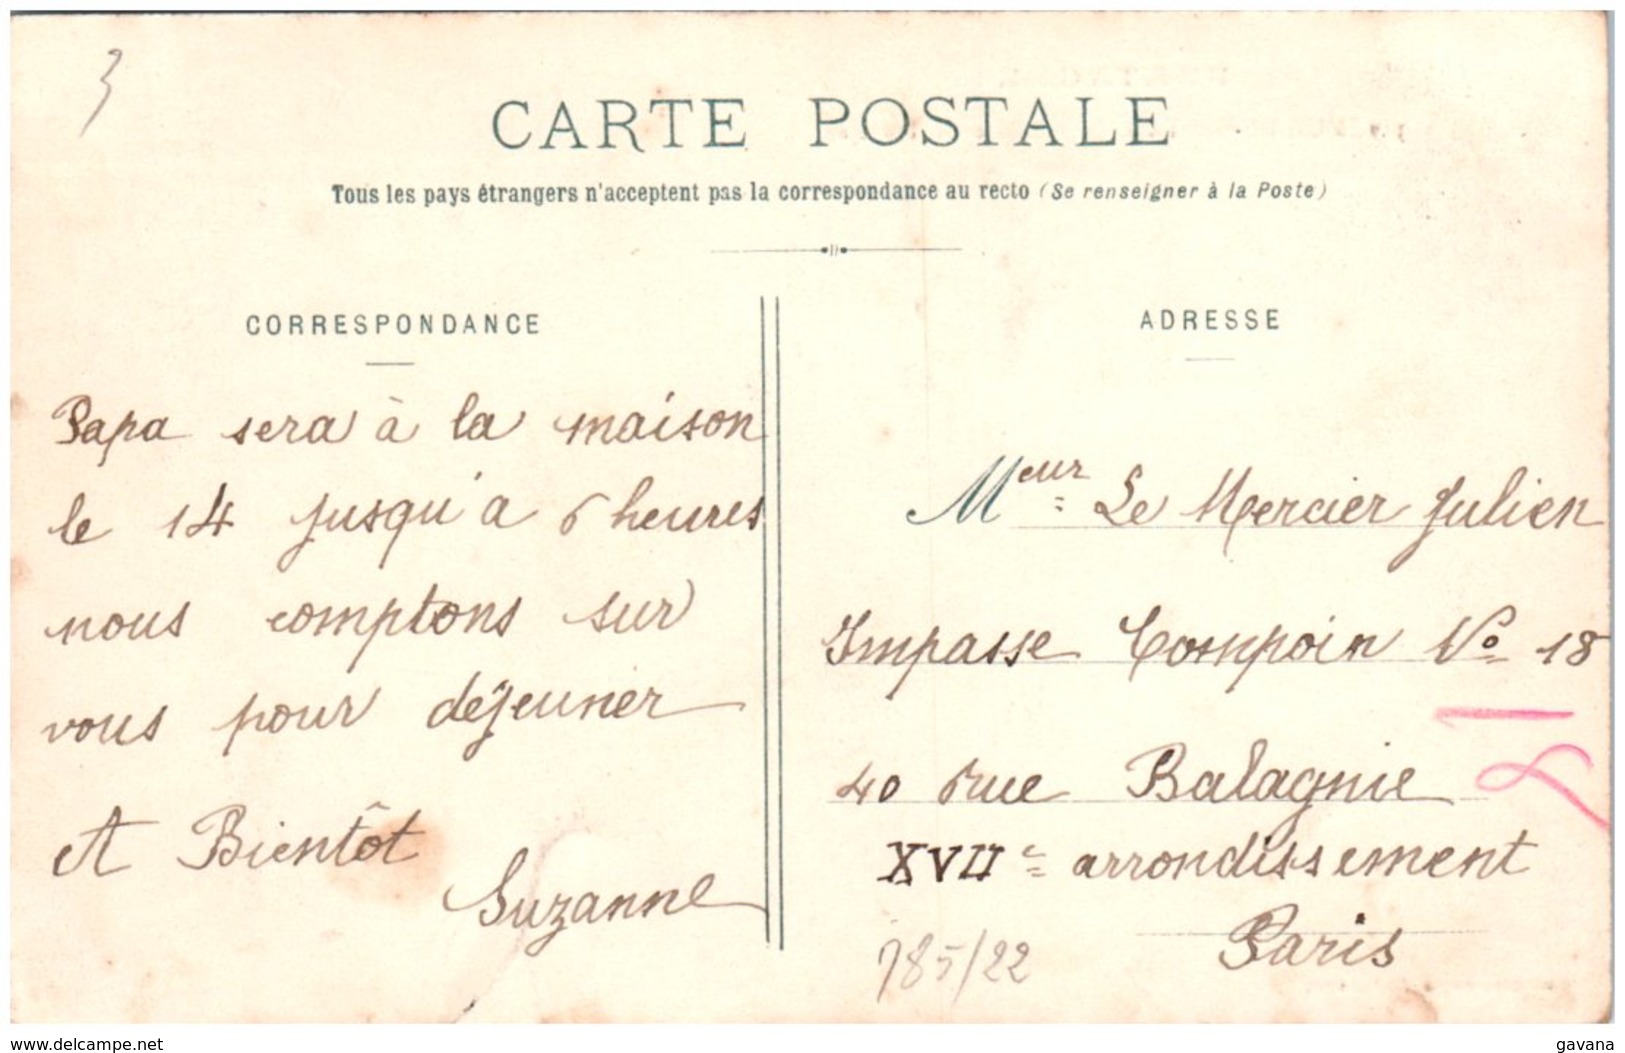 3
CARTE POSTALE
Tous les pays étrangers n'acceptent pas la correspondance au recto (Se renseigner à la Poste)
CORRESPONDANCE
Papa sera à la maison
le 14 jusqu'a 6 heures
nous comptons sur
vous pour déjeuner
A Bientôt
Suzanne
ADRESSE
Meur Le Mercier Julien
Impasse Compoin No 18
40 rue Balagnie
XVIIe arrondissement
Paris
785/22
www.delcampe.net
gavana